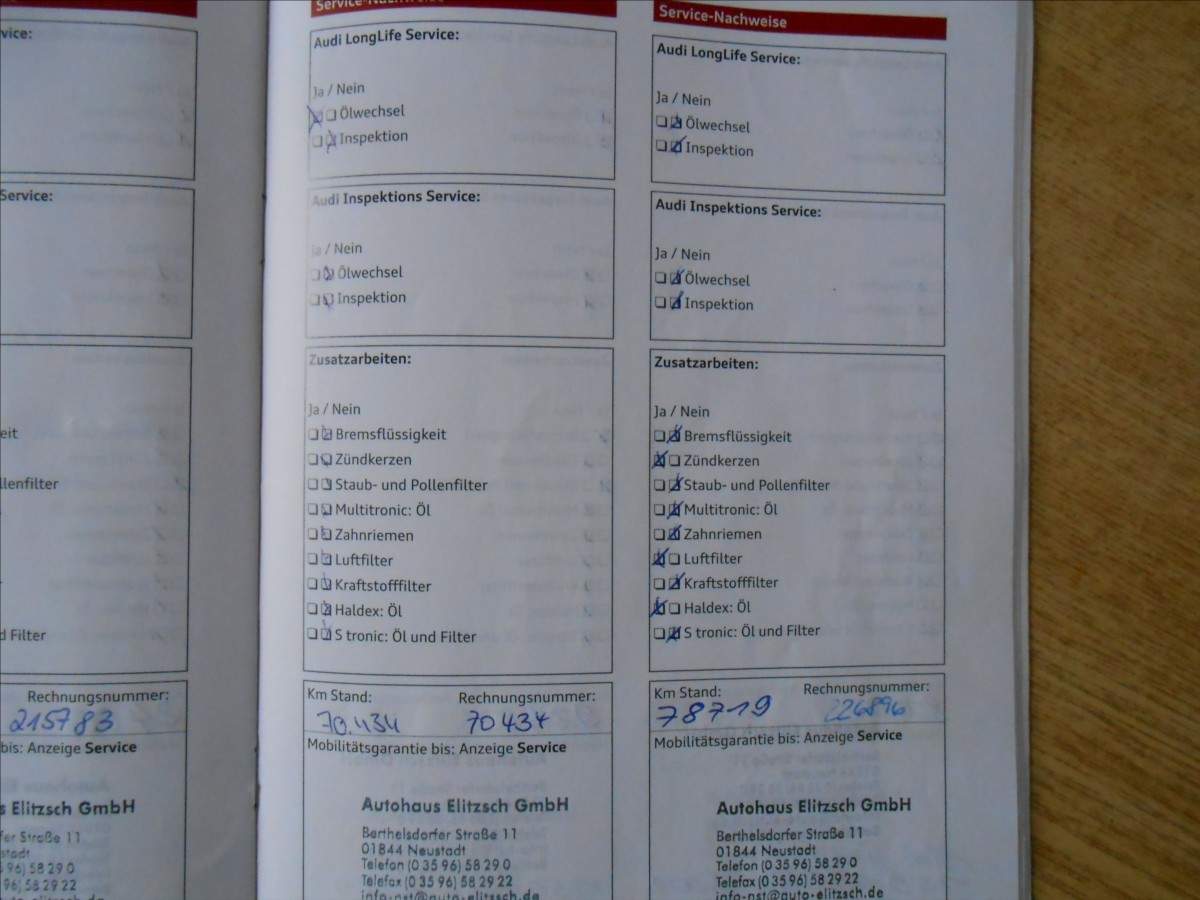 vice:
Service:
eit
llenfilter
d Filter
Rechnungsnummer:
215783
bis: Anzeige Service
s Elitzsch GmbH
fer Straße 11
stadt
5 96) 58 29 0
96) 58 29 22
Service-Nachweise
Audi LongLife Service:
Ja / Nein
Ölwechsel
Inspektion
Audi Inspektions Service:
Ja / Nein
Ölwechsel
Inspektion
Zusatzarbeiten:
Ja / Nein
Bremsflüssigkeit
Zündkerzen
Staub- und Pollenfilter
Multitronic: Öl
Zahnriemen
Luftfilter
Kraftstofffilter
Haldex: Öl
S tronic: Öl und Filter
Km Stand: Rechnungsnummer:
70.434 70434
Mobilitätsgarantie bis: Anzeige Service
Autohaus Elitzsch GmbH
Berthelsdorfer Straße 11
01844 Neustadt
Telefon (0 35 96) 58 29 0
Telefax (0 35 96) 58 29 22
info-nst@auto-elitzsch.de
Service-Nachweise
Audi LongLife Service:
Ja / Nein
Ölwechsel
Inspektion
Audi Inspektions Service:
Ja / Nein
Ölwechsel
Inspektion
Zusatzarbeiten:
Ja / Nein
Bremsflüssigkeit
Zündkerzen
Staub- und Pollenfilter
Multitronic: Öl
Zahnriemen
Luftfilter
Kraftstofffilter
Haldex: Öl
S tronic: Öl und Filter
Km Stand: Rechnungsnummer:
78719 226896
Mobilitätsgarantie bis: Anzeige Service
Autohaus Elitzsch GmbH
Berthelsdorfer Straße 11
01844 Neustadt
Telefon (0 35 96) 58 29 0
Telefax (0 35 96) 58 29 22
info-nst@auto-elitzsch.de